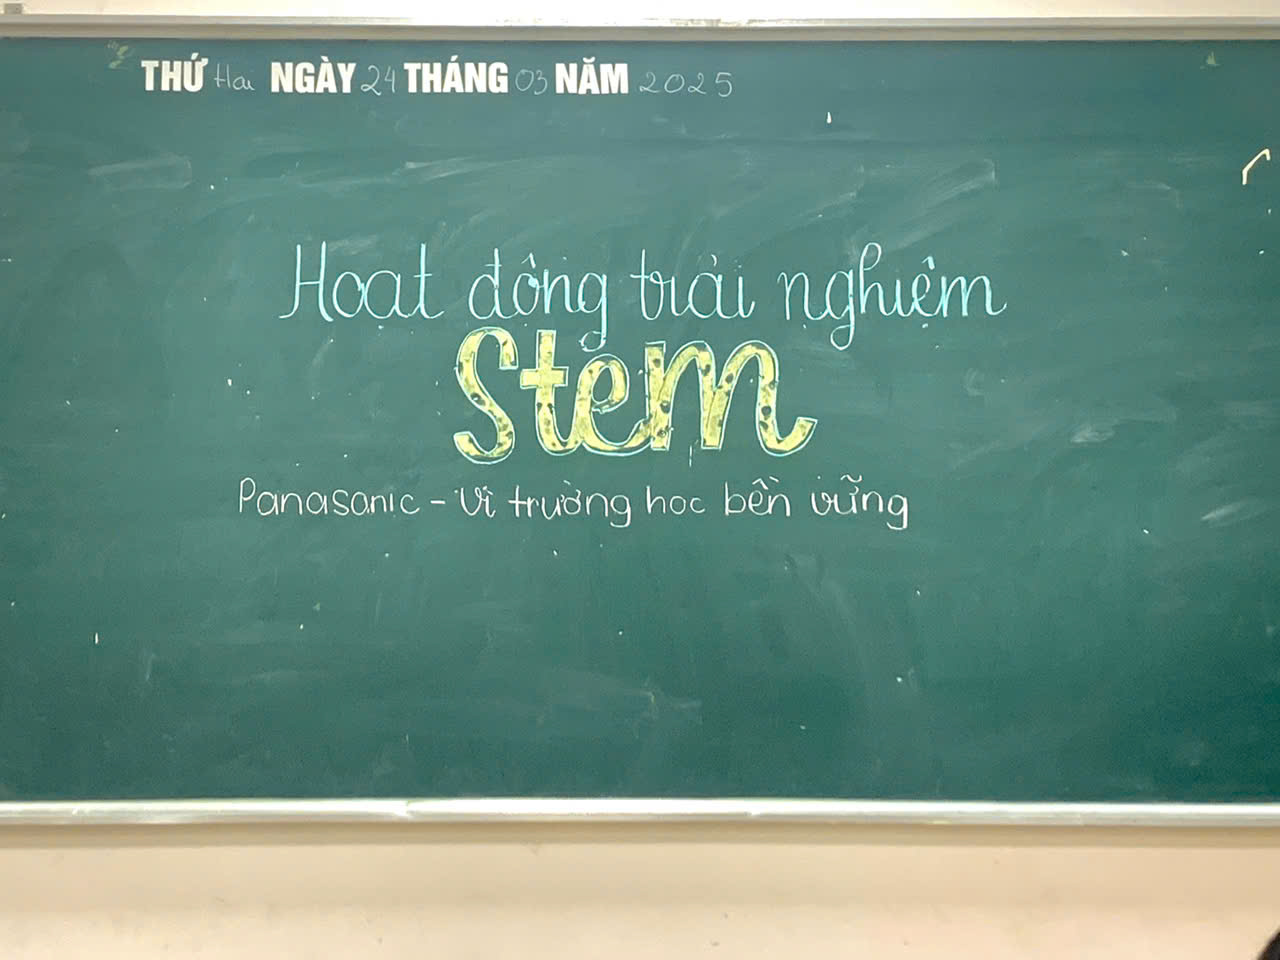 THỨ Hai NGÀY 24 THÁNG 03 NĂM 2025
Hoạt động trải nghiệm
Stem
Panasanic - Vì trường học bền vững